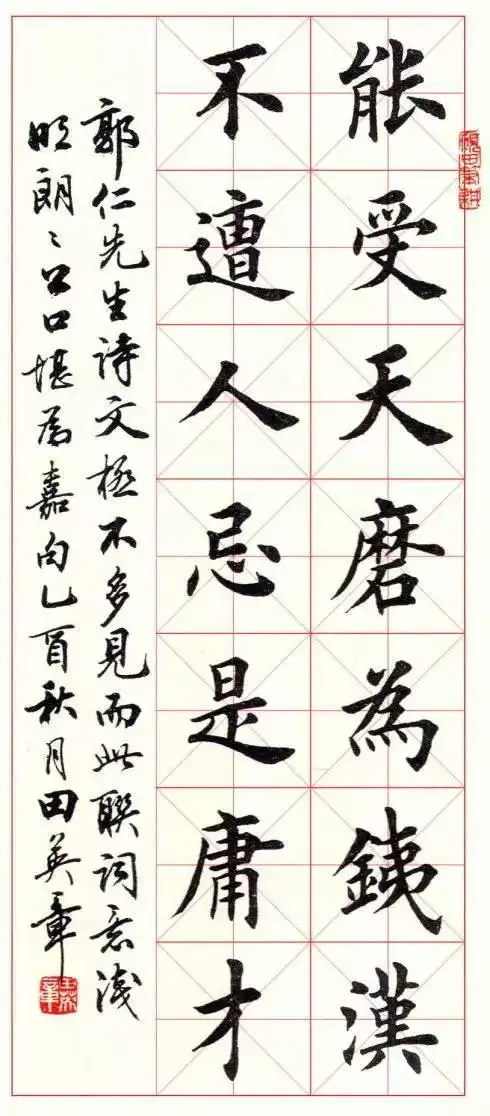 能受天磨為銕漢
不遭人忌是庸才
郭仁先生诗文極不多見而此聯詞意浅
明朗〻上口堪為嘉句乙酉秋月田英章